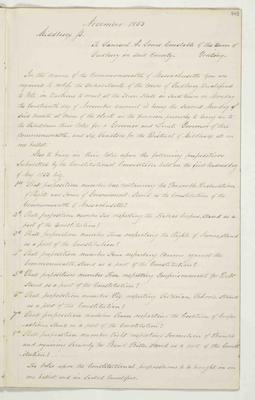 November 1853
Middlesex ss.
To Samuel A. Jones Constable of the Town of
Sudbury in said County. Greeting.
In the name of the Commonwealth of Massachusetts You are
required to notify the Inhabitants of the Town of Sudbury qualified
to vote in Elections to meet at the Town Hall in said Town on Monday
the fourteenth day of November current it being the Second Monday of
said month at Nine of the Clock in the forenoon to bring in to
the Selectmen their Votes for a Governor and Lieut. Governor of this
Commonwealth and Senators for the District of Middlesex all on
one ballot.
Also to bring in their Votes upon the following propositions
Submitted by the Constitutional Convention held on the first Wednesday
of May 1853 viz.
1st Shall proposition number One containing the
of Rights and Frame of Government stand as the Constitution of the
Commonwealth of Massachusetts?
2d Shall proposition number Two respecting the Habeas Corpus, Stand as a
part of the Constitution?
3d Shall proposition number Three respecting the Rights of Juries, Stand
as a part of the Constitution?
4th Shall proposition number Four respecting Claims against the
Commonwealth, Stand as a part of the Constitution?
5th Shall proposition number Five respecting Imprisonment for Debt
Stand as a part of the Constitution?
6th Shall proposition number Six respecting Sectarian Schools, Stand
as a part of the Constitution?
7th Shall proposition number Seven respecting the Creation of Corpo-
rations, Stand as a part of the Constitution?
8th Shall proposition number Eight respecting
and Banks, Stand as a part of the Consti-
tution?
The Votes upon the Constitutional propositions to be brought in on
one ballot and in Sealed Envelopes.